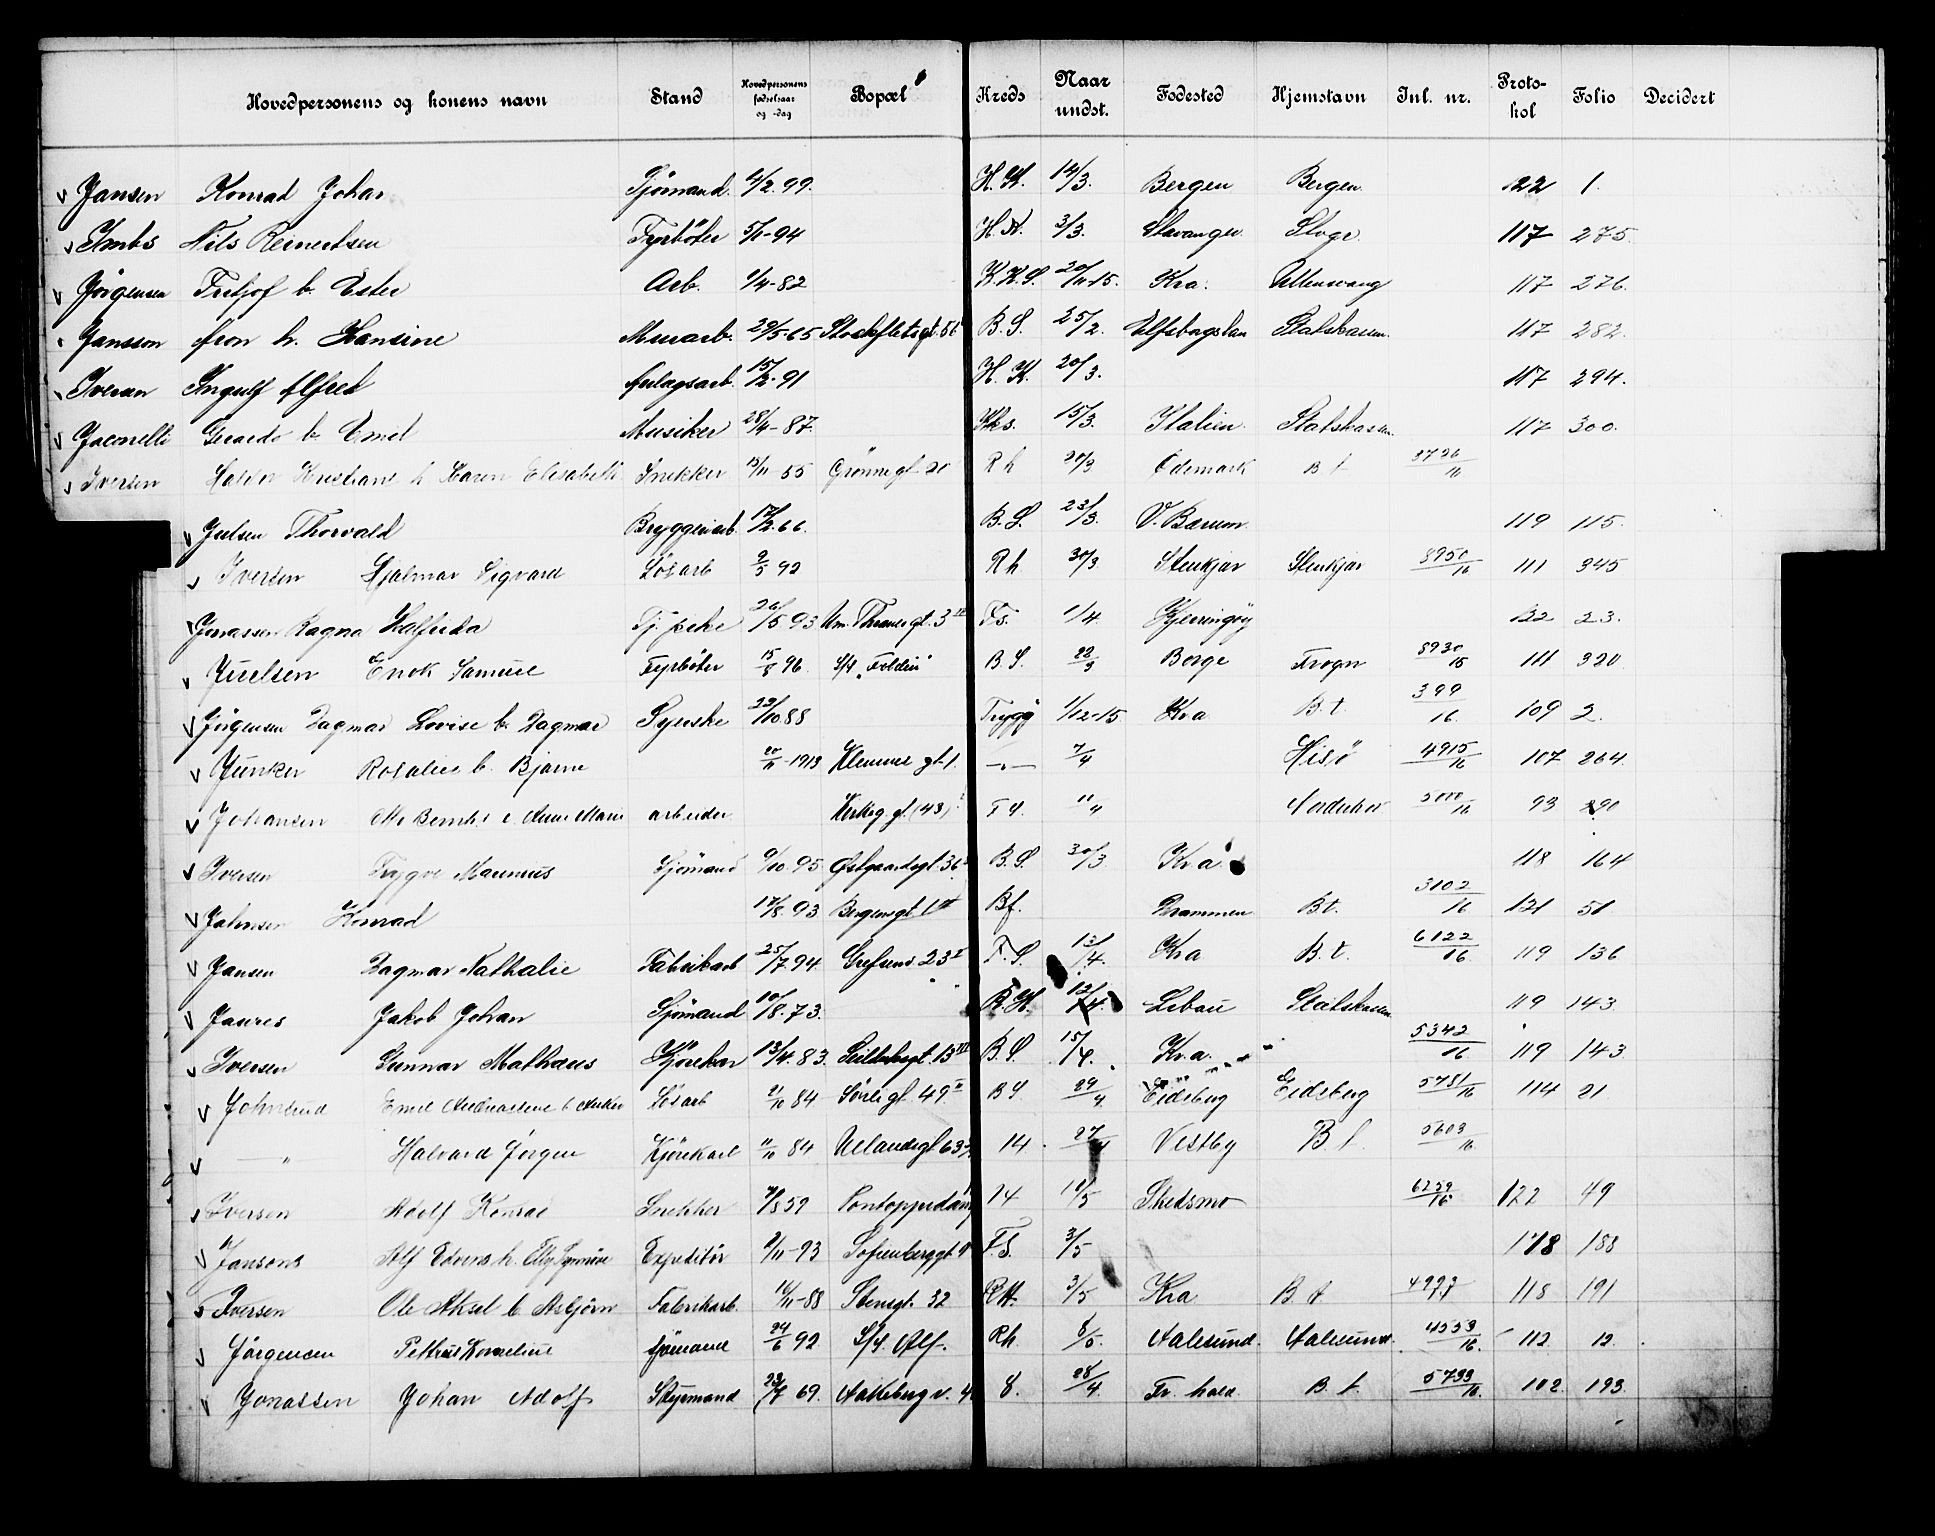 Hovedpersonens og konens navn | Stand | Hovedpersonens fødselsaar og -dag | Bopæl | Kreds | Naar undst. | Fødested | Hjemstavn | Inl. nr. | Protokol | Folio | Decidert
Jansen Konrad Johan | Sjömand | /2. 99. | H. K. | 14/3. | Bergen | Bergen | 122 | 1.
Nils Reinertsen | Fyrböter | 5/1-94 | 3/3. | Stavanger | 117 | 275.
Jörgensen Fritjof b. Ester | Arb. | 9/4-82 | K.K.S. | 20/11-15. | Kra. | Ullensvang | 117 | 276.
Jansson Aron h. Hansine | Murarb. | 29/5-65 | Stockfletsgt. 56 | B. S. | 25/2. | Elfsborgslän | Statskassen. | 117 | 282.
Iversen Ingulf Alfred | Anlagsarb. | 15/2-91 | H. K. | 20/3. | 117 | 294.
Jaconelli Gerardo b. Emel | Musiker | 28/4-87. | 15/3. | Italien | Statskassen. | 117 | 300.
Iversen Kristiane h Karen Elisabeth | Snekker | 15/11-55 | Grönnegt. 20 | Rh | 20/3 | Ödemark | B t | 3726/16
Julsen Thorvald | Bryggeriarb. | 17/2. 66. | B. S. | 23/3. | V. Bærum | 119 | 115.
Iversen Hjalmar Sigvard | Lösarb | 2/3 92 | Rh | 30/3 | Stenkjær | Stenkjær | 8950/16 | 111 | 345
Jonassen Ragna Halfrida | Tj. pike | 26/5. 93 | Am. Thranesgt. 3 IV | Fs. | 1/4 | Kjerringöy | 122 | 23.
Juelsen Enok Samuel | Fyrböter | 15/8 96. | S/S "Foldin" | B. S. | 22/3 | Borge | Frogn | 8930/15 | 111 | 320
Jörgensen Dagmar Lovise b. Dagmar | Syerske | 23/10 88 | Trygg | 1/12-15. | Kra | B. t. | 399/16. | 109 | 2.
Junker Rosalie b. Bjarne | 20/11-1913 | gt. 1. | -"- | 7/4 | Hisö | 4915/16 | 107 | 264.
Johansen Anne Marie | arbeider | Kirkeg. gt. (43) | 11/4 | Norderhov | 5000/16 | 93 | 290
Iversen Trygve Marinius | Sjömand | 9/10. 95. | Östgaardsgt. 36 | B. S. | 30/3 | Kra. | 118 | 164
Johnsen Konrad | 17/8. 93 | Bergensgt. 1 | Bf. | Drammen | B t. | 3102/16 | 121 | 51.
Jansen Dagmar Nathalie | Fabrikarb | 25/7. 94. | Grefsenv. 23 II | F. S. | 13/4. | Kra | B. t. | 6122/16. | 119 | 136
Jaures Jakob Johan | Sjömand | 10/8. 73. | R. H. | 12/4. | Libau | Statskassen | 119 | 143.
Iversen Gunnar Mathæus | Kjörekar | 13/4. 83. | 13 III | B. S. | 15/4. | Kra. | " | 5342/16 | 119 | 143.
Johnsrud Emil | Lösarb | 2/10 84 | Sörligt. 49 II | B S | 29/4 | Eidsberg | Eidsberg | 5781/16 | 114 | 21
—"— Halvard Jörgen | Kjörekarl | 11/10 84 | Uelandsgt 63 | 14 | 27/4 | Vestby | B. t. | 5603/16.
Iversen Adolf Konrad | Snekker | /8 59 | Pontoppidansg | 14 | 11/5 | Skedsmo | 6259/16 | 122 | 49
Jansons Alf | Expeditör | 2/11-93 | Sofienberggt. | F.S. | 3/5 | 118 | 188
Iversen Ole Aksel b. Asbjörn | Fabrikarb. | 16/11-88 | Stensgt. 32 | RH. | 3/5 | Kra | B. t | 4997 | 118 | 191
Jörgensen Petter Kornelius | Sjömand | 24/6 92. | S/S. Alf. | Rh. | 8/5. | Aalesund. | Aalesund. | 4553/16. | 112 | 12.
Jonassen Johan Adolf | Styrmand | 23/7 69. | Aakebergv. 4 | 8. | 28/4. | Fr. hald. | B. t | 5733/16. | 102 | 193.